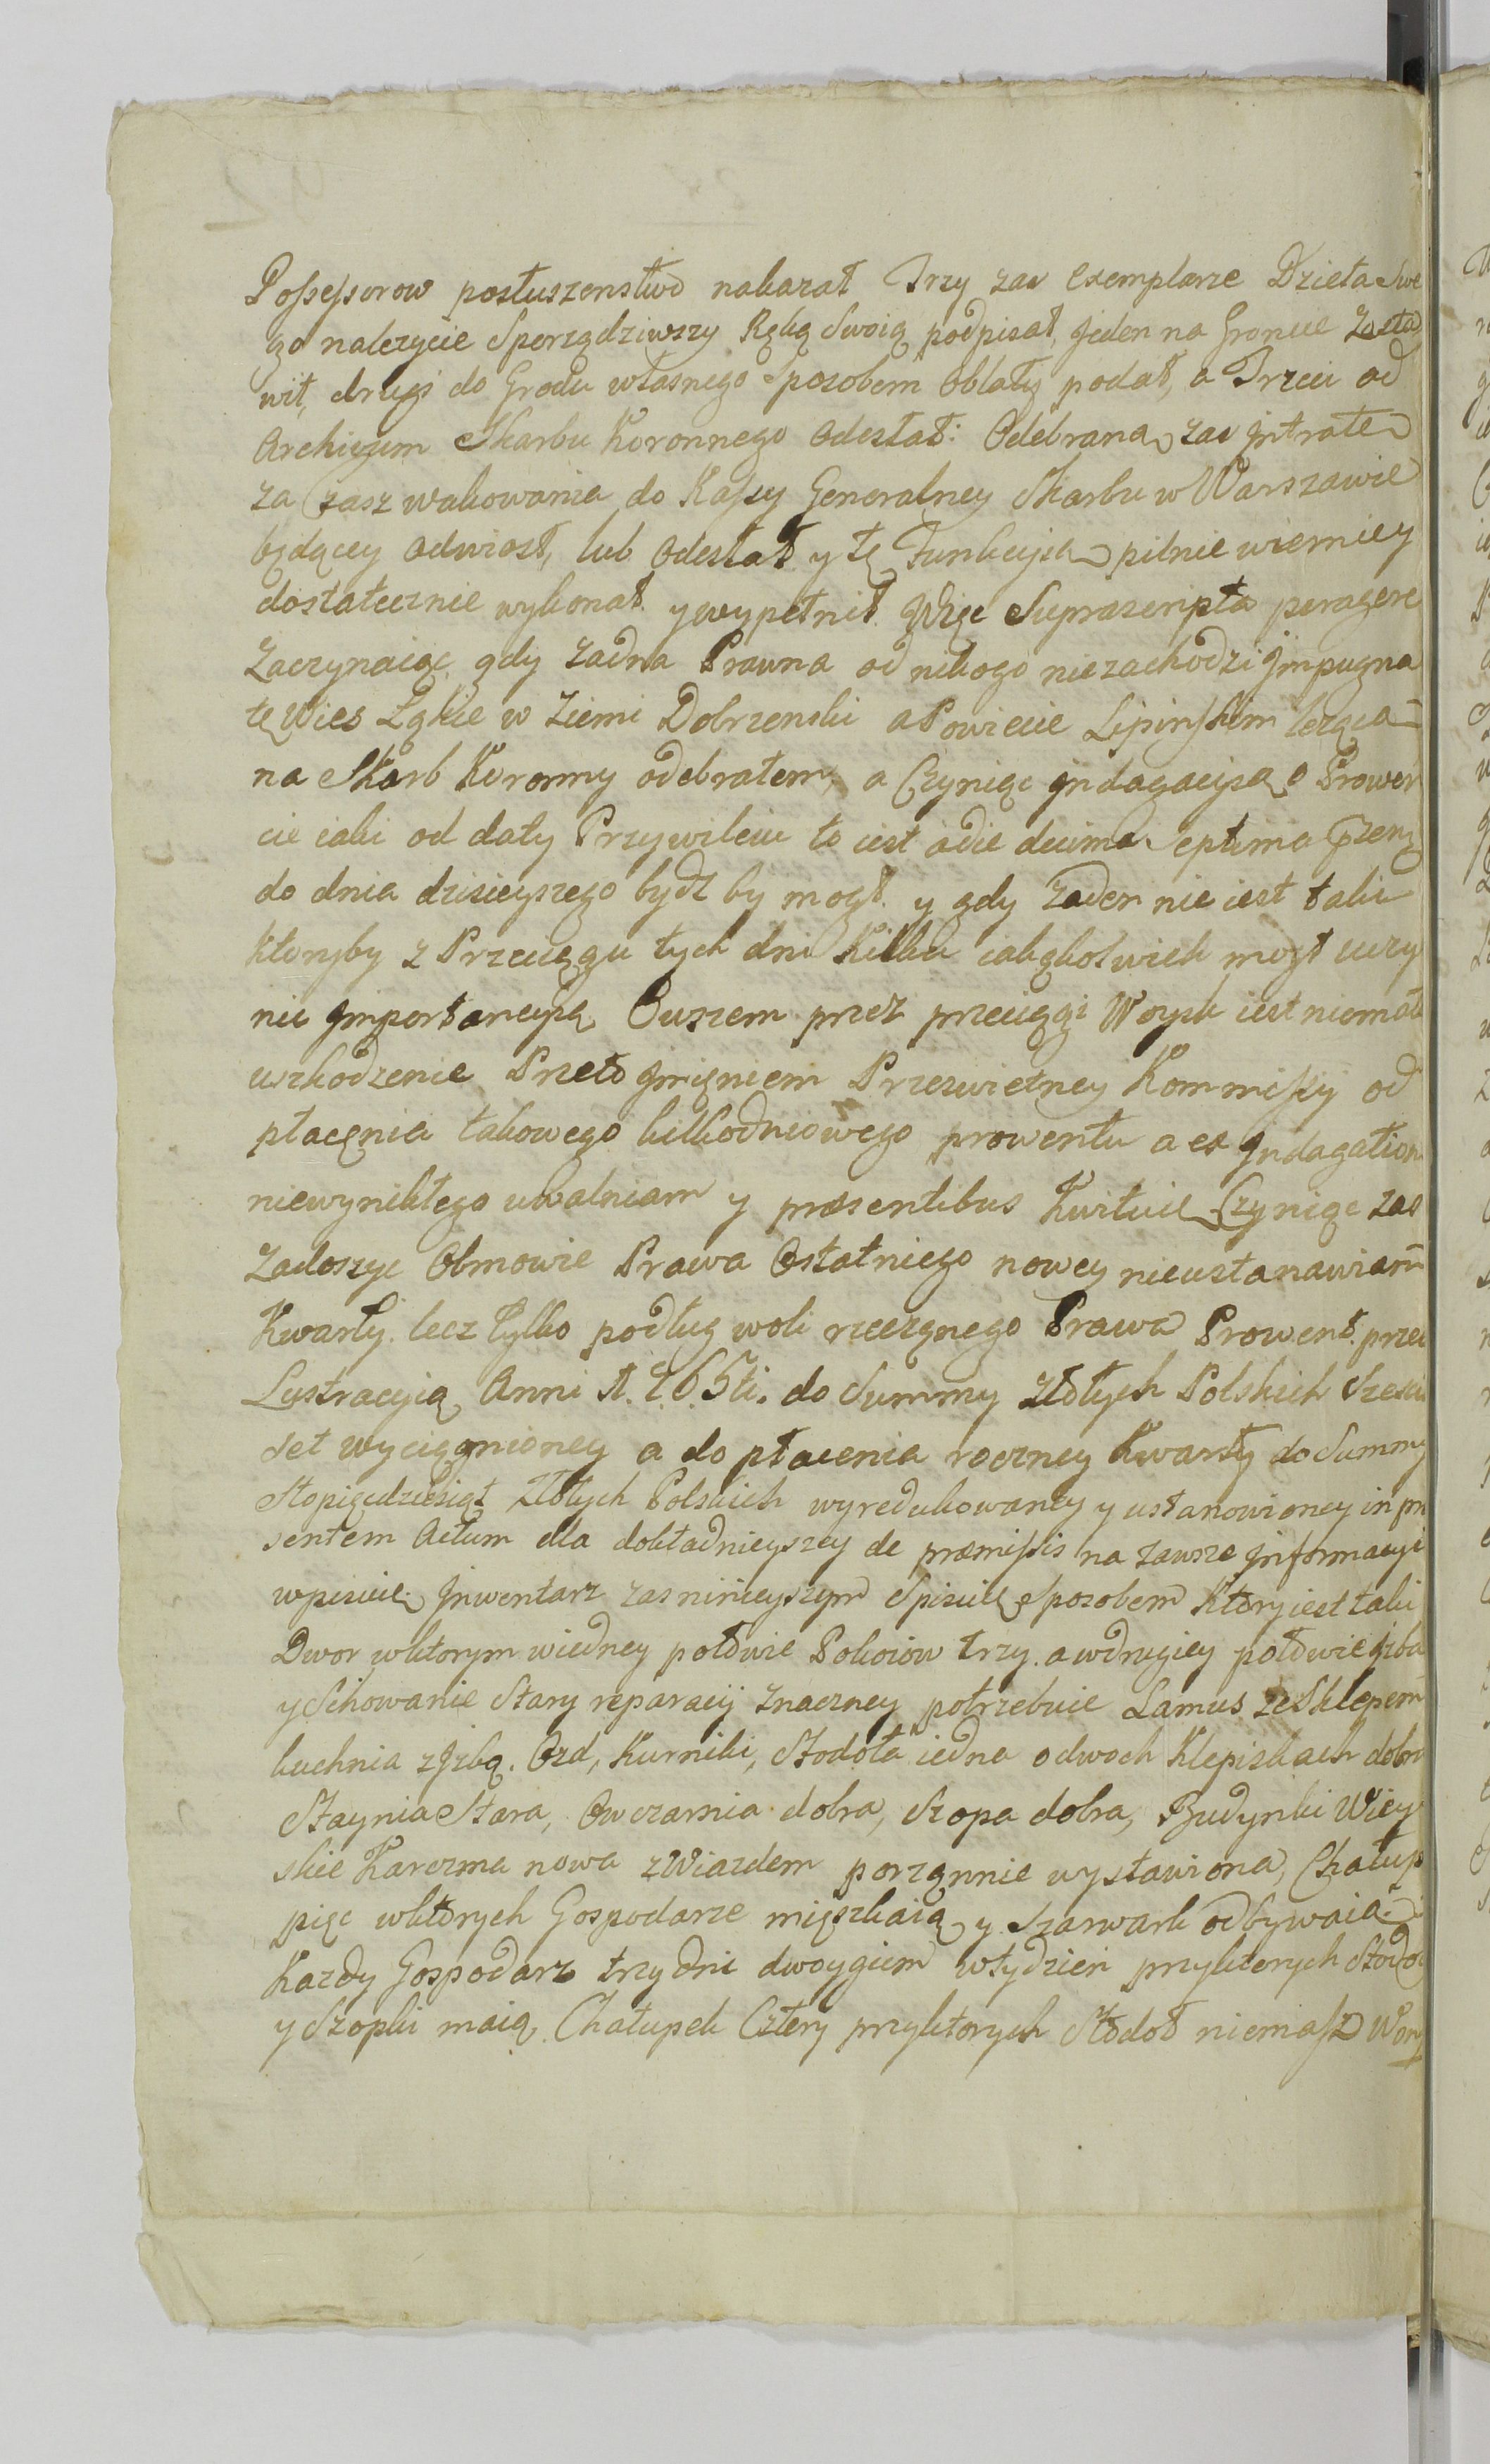 Possessorow posłuszenstwo nakazał Trzy zas Exemplarze Dzieła Swe
go nalezycie Sporządziwszy Ręką Swoią podpisał, jeden na Groncie Zosta
wił, drugi do Grodu własnego Sposobem Oblaty podał, a Trzeci ad
Archivum Skarbu Koronnego Odesłał: Odebraną zas Jntratę
za Czasz wakowania do Kassy Generalney Skarbu w Warszawie
będącey Odwiosł, lub Odesłał y tę Funkcyią pilnie wierniey
dostatecznie wykonał y wypełnił. Więc Suprascripta peragere
Zaczynaiąc, gdy Zadna Prawna od nikogo niezachodzi Jmpugna
tę Wies Łąkie w Ziemi Dobrzenski a Powiecie Lipinskim lezącą
na Skarb Koronny odebrałem, a Czyniąc Jndagacyią o Prowen
cie iaki od daty Przywileiu to iest a die decima Septima
do dnia dzisieyszego bydz by mogł. y gdy Zaden nie iest taki
ktoryby z Przeciągu tych dni Kilku iakąkolwiek mogł uczy
nic Jmportancyią Owszem przez przeciągi Woysk iest niemałe
uszkodzenie Przeto Jmieniem Przeswietney Kommissyi od
płacenia takowego kilkodniowego prowentu a ex Jndagation
niewynikłego uwalniam y præsentibus Kwituię Czyniąc zas
Zadoszyc Obmowie Prawa Ostatniego nowey nieustanawiam
Kwarty. lecz tylko podług woli rzeczonego Prawa Prowent. przez
Lustracyią Anni 1765ti. do Summy Złotych Polskich Szesci
set wyciągnioney a do płacenia roczney Kwarty do Summy
Stopięcdziesiąt Złotych Polskich wyredukowaney y ustanowioney in præ
sentem Actum dla dokładnieyszey de præmissis na zawsze Jnformacyi
wpisuię. Jnwentarz zas ninieyszym Spisuię Sposobem Ktory iest taki
Dwor wktorym wiedney połowie Pokoiow trzy. a wdrugiey połowie Jzba
y Schowanie Stary reparacyi znaczney potrzebuie Lamus ze Sklepem
kuchnia z Jzbą. Ozd, Kurniki, Stodoła iedna o dwoch Klepiskach dobra
Staynia Stara, Owczarnia dobra, Szopa dobra, Budynki Wiey
skie Karczma nowa z Wiazdem porządnie wystawiona, Chałup
pięc wktorych Gospodarze mięszkaią y Szarwark odbywaią.
Kazdy Gospodarz trzy dni dwoygiem wtydzien przyktorych Stodoł
y Szopki maią. Chałupek Cztery przyktorych Stodoł niemasz